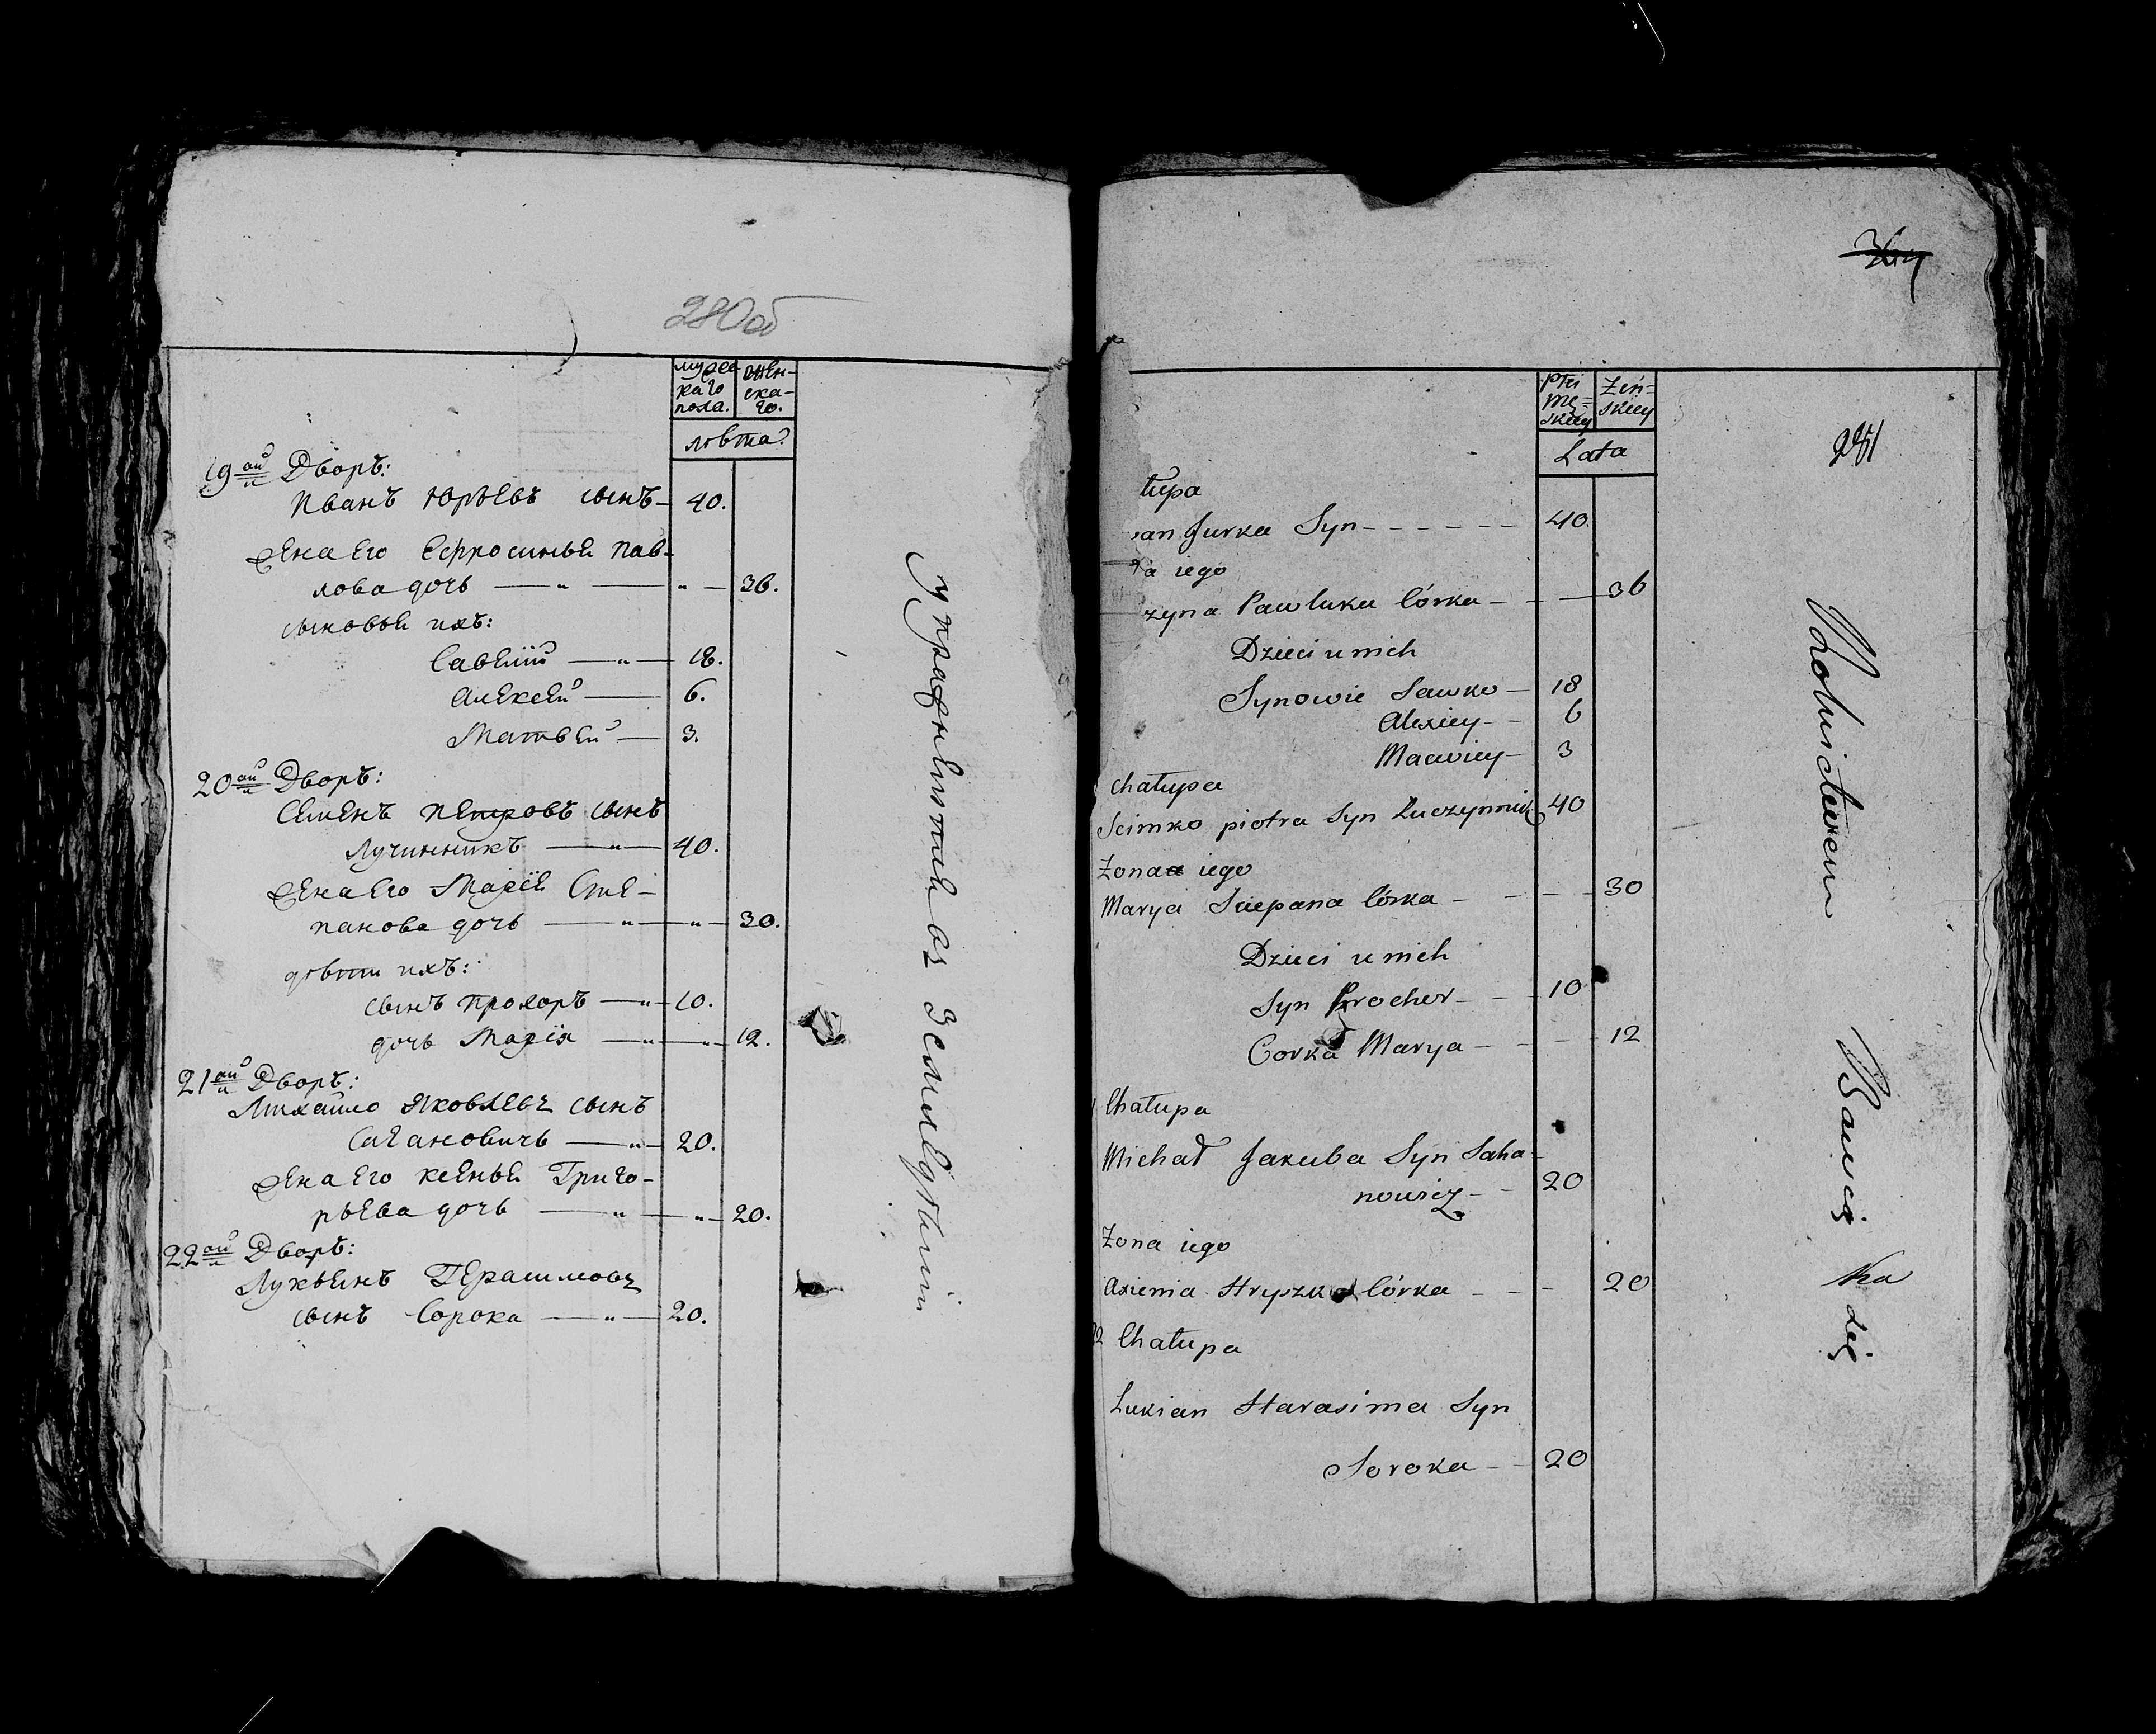 280об
мужес-
каго
пола.
жен-
ска-
го.
лѣта.
19ый Дворъ:
Иванъ Юрьевъ сынъ — 40.
Жена его Ефросинья Пав-
лова дочь — „ — „ — 36.
сыновья ихъ:
Савелій — „ — 18.
Алексей — 6.
Матвей — 3.
20ый Дворъ:
Семенъ Петровъ сынъ
Лучинникъ — „ — 40.
Жена его Марія Сте-
панова дочь — „ — „ — 30.
дѣти ихъ:
сынъ Прохоръ — „ — 10.
дочь Марія — „ — „ — 12.
21ый Дворъ:
Михайло Яковлевъ сынъ
Сагановичъ — „ — 20.
Жена его Ксенья Григо-
рьева дочь — „ — „ — 20.
22ый Дворъ:
Лукьянъ Герасимовъ
сынъ Сорока — „ — 20.
упражняются въ Земледѣліи
Płci
Mę=
skiey
Żeń=
skiey
Lata
281
łupa
an Jurka Syn - - - - - - 40.
a iego
zyna Pawluka Córka - - — 36
Dzieci u nich
Synowie Sawko — 18
Alexiey - - 6
Maciviey - 3
Chałupa
Scimko piotra Syn Łuczynnik 40
Zona iego
Marya Sciepana Córka - - - - 30
Dzieci u nich
Syn Procher - - - 10
Corka Marya - - - - 12
Chałupa
Michał Jakuba Syn Saha-
nowicz - - 20
Zona iego
Axienia Hryszki Córka - - - 20
22 Chałupa
Lukian Harasima Syn
Soroka - - 20
Rolnictwem Bawią
się